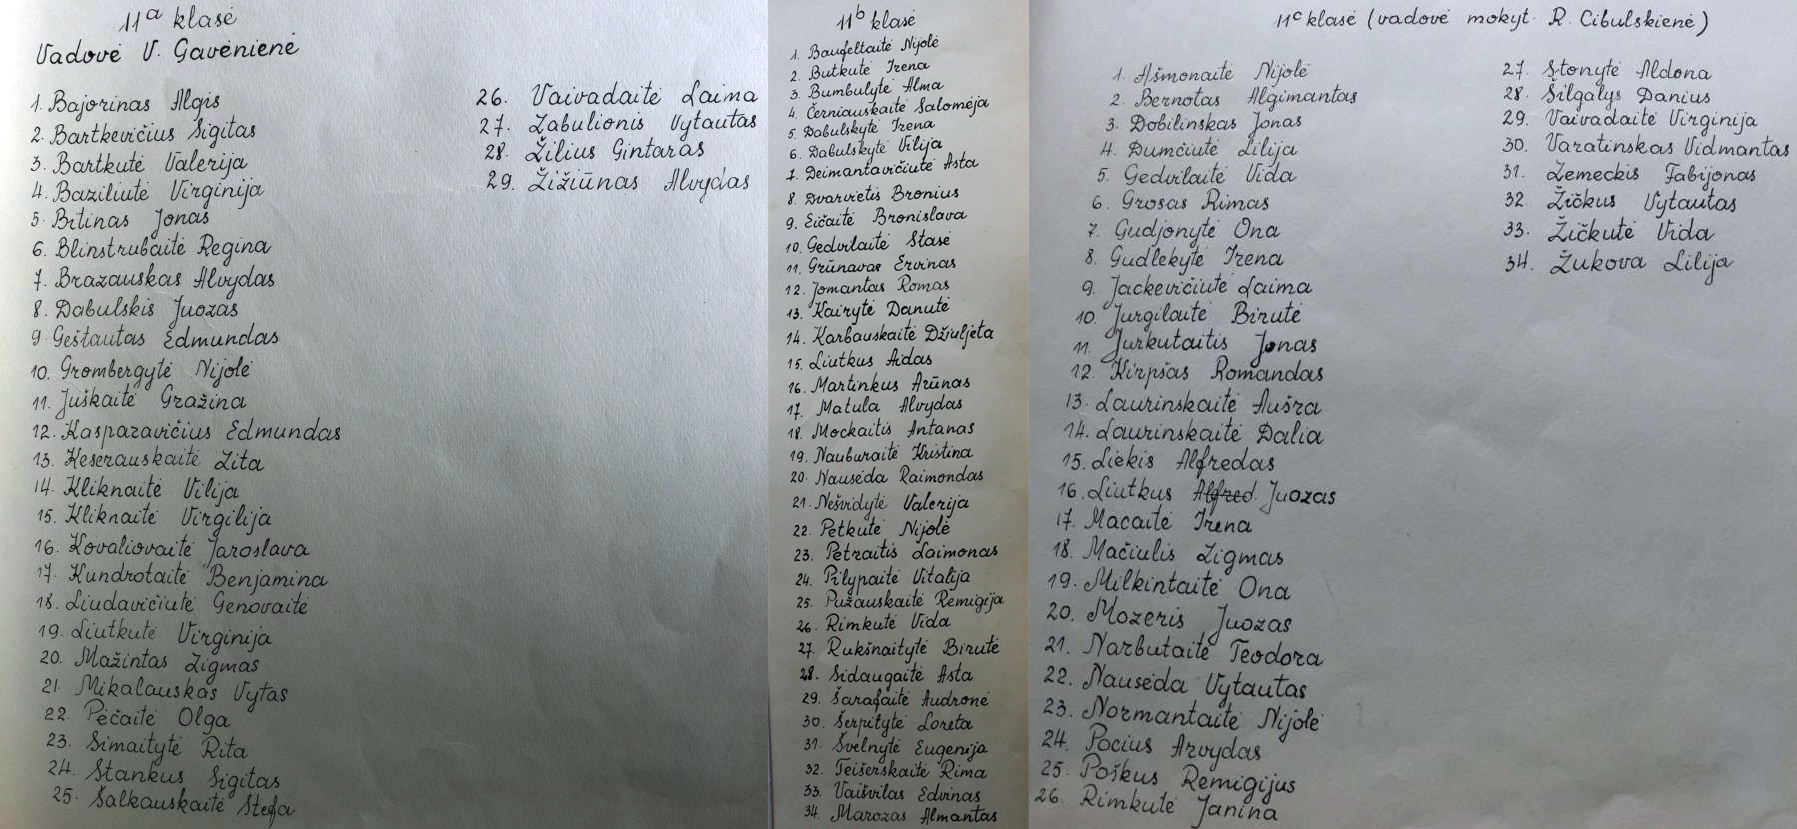 11ᵃ klasė
Vadovė V. Gavėnienė
1. Bajorinas Algis
2. Bartkevičius Sigitas
3. Bartkutė Valerija
4. Baziliutė Virginija
5. Bitinas Jonas
6. Blinstrubaitė Regina
7. Brazauskas Alvydas
8. Dabulskis Juozas
9. Geštautas Edmundas
10. Grombergytė Nijolė
11. Juškaitė Gražina
12. Kasparavičius Edmundas
13. Keserauskaitė Zita
14. Kliknaitė Vilija
15. Kliknaitė Virgilija
16. Kovaliovaitė Jaroslava
17. Kundrotaitė Benjamina
18. Liudavičiutė Genovaitė
19. Liutkutė Virginija
20. Mažintas Zigmas
21. Mikalauskas Vytas
22. Pėčaitė Olga
23. Simaitytė Rita
24. Stankus Sigitas
25. Šalkauskaitė Stefa
26. Vaivadaitė Laima
27. Zabulionis Vytautas
28. Žilius Gintaras
29. Žižiūnas Alvydas
11ᵇ klasė
1. Baufeltaitė Nijolė
2. Butkutė Irena
3. Bumbulytė Alma
4. Černiauskaitė Salomėja
5. Dabulskytė Irena
6. Dabulskytė Vilija
7. Deimantavičiutė Asta
8. Dvarvietis Bronius
9. Eičaitė Bronislava
10. Gedvilaitė Stasė
11. Grūnavas Ervinas
12. Jomantas Romas
13. Kairytė Danutė
14. Karbauskaitė Džiuljeta
15. Liutkus Aidas
16. Martinkus Arūnas
17. Matula Alvydas
18. Mockaitis Antanas
19. Nauburaitė Kristina
20. Nausėda Raimondas
21. Nešvidytė Valerija
22. Petkutė Nijolė
23. Petraitis Laimonas
24. Pilypaitė Vitalija
25. Pužauskaitė Remigija
26. Rimkutė Vida
27. Rukšnaitytė Birutė
28. Sidaugaitė Asta
29. Šarafaitė Audronė
30. Šerpitytė Loreta
31. Švelnytė Eugenija
32. Teišerskaitė Rima
33. Vaišvilas Edvinas
34. Marozas Almantas
11ᶜ klasė (vadovė mokyt. R. Cibulskienė)
1. Ašmonaitė Nijolė
2. Bernotas Algimantas
3. Dobilinskas Jonas
4. Dumčiutė Lilija
5. Gedvilaitė Vida
6. Grosas Rimas
7. Gudjonytė Ona
8. Gudlekytė Irena
9. Jackevičiutė Laima
10. Jurgilaitė Birutė
11. Jurkutaitis Jonas
12. Kirpšas Romandas
13. Laurinskaitė Aušra
14. Laurinskaitė Dalia
15. Liekis Alfredas
16. Liutkus Alfred. Juozas
17. Macaitė Irena
18. Mačiulis Zigmas
19. Milkintaitė Ona
20. Mozeris Juozas
21. Narbutaitė Teodora
22. Nausėda Vytautas
23. Normantaitė Nijolė
24. Pocius Arvydas
25. Poškus Remigijus
26. Rimkutė Janina
27. Stonytė Aldona
28. Šilgalys Danius
29. Vaivadaitė Virginija
30. Varatinskas Vidmantas
31. Zemeckis Fabijonas
32. Žičkus Vytautas
33. Žičkutė Vida
34. Žukova Lilija